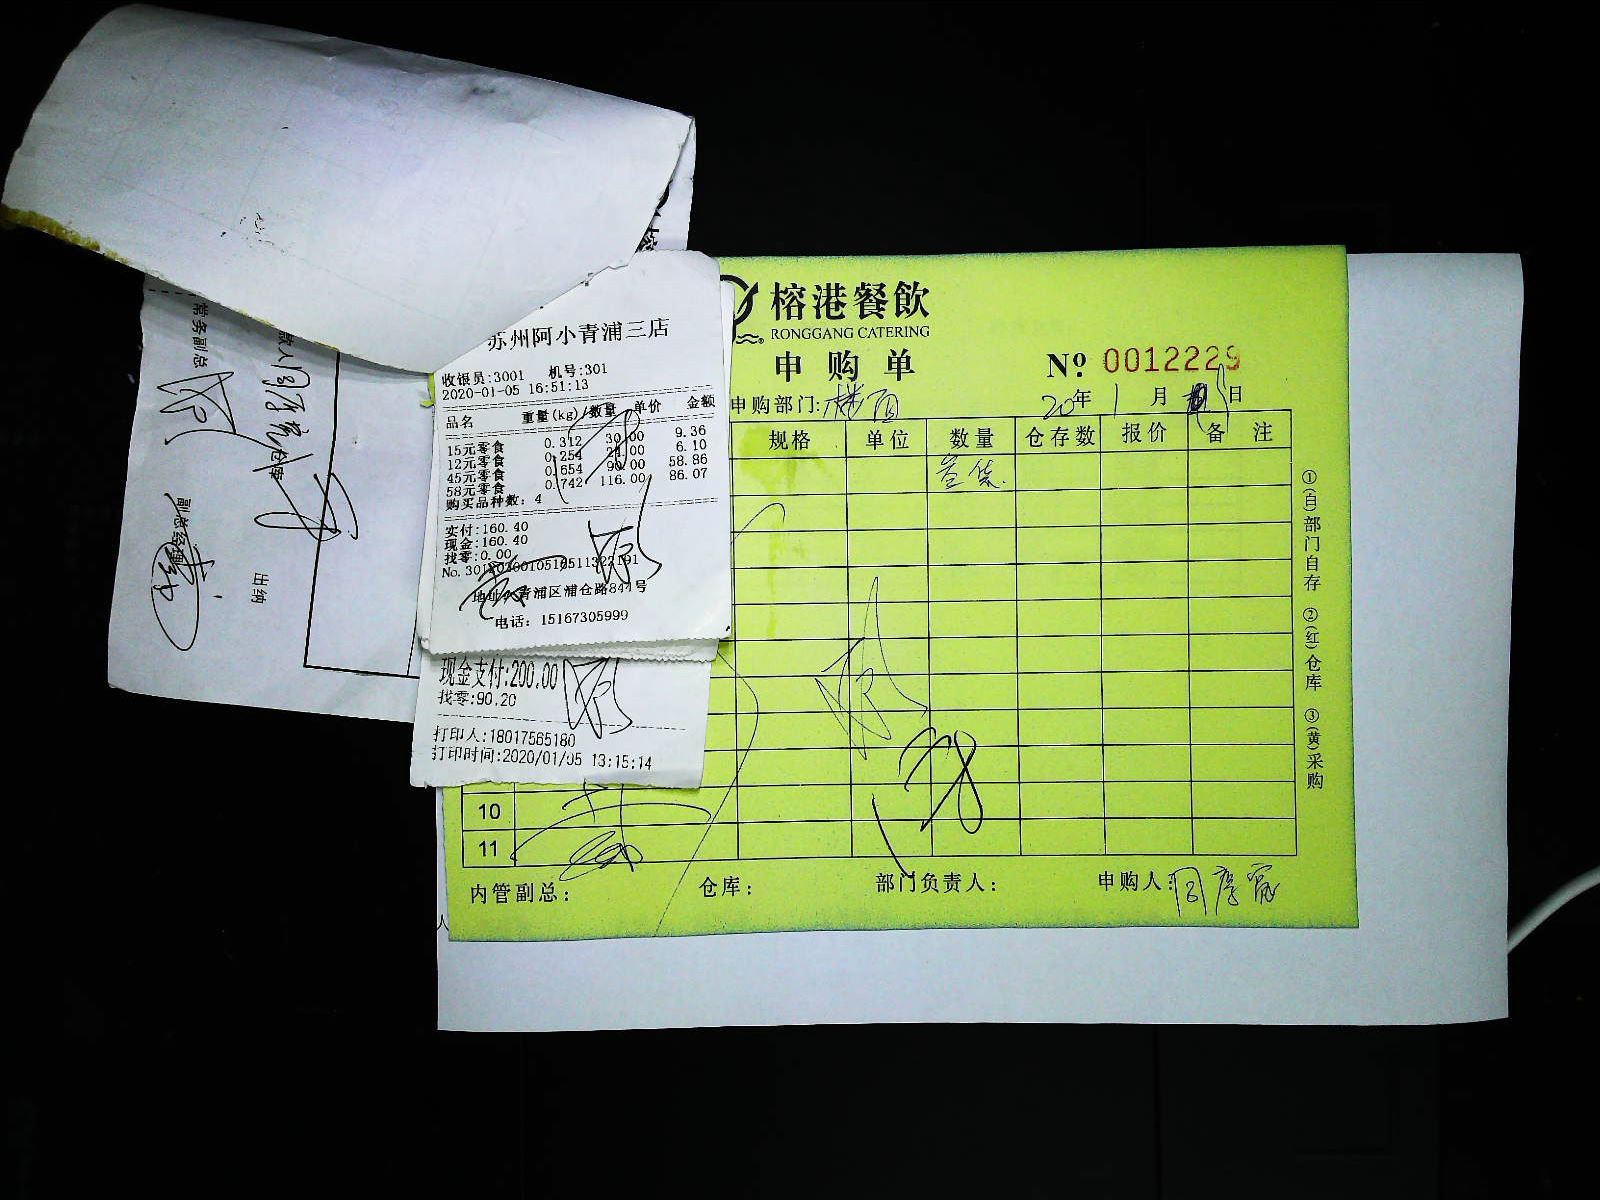 苏州阿小青浦三店
收银员:3001 机号:301
2020-01-05 16:51:13
品名 重量(kg)/数量 单价 金额
15元零食 0.312 30.00 9.36
12元零食 0.254 24.00 6.10
45元零食 0.654 90.00 58.86
58元零食 0.742 116.00 86.07
购买品种数: 4
实付:160.40
现金:160.40
找零:0.00
地址:青浦区浦仓路844号
电话: 15167305999
现金支付:200.00
找零:90.20
打印人:18017565180
打印时间:2020/01/05 13:15:14
榕港餐飲
RONGGANG CATERING
申购单
№ 0012229
申购部门:楼面
20年 1月 5日
规格 单位 数量 仓存数 报价 备注
10
11
内管副总: 仓库: 部门负责人: 申购人:
①(白)部门自存 ②(红)仓库 ③(黄)采购
常务副总
款人
仓库
副总经理
出纳